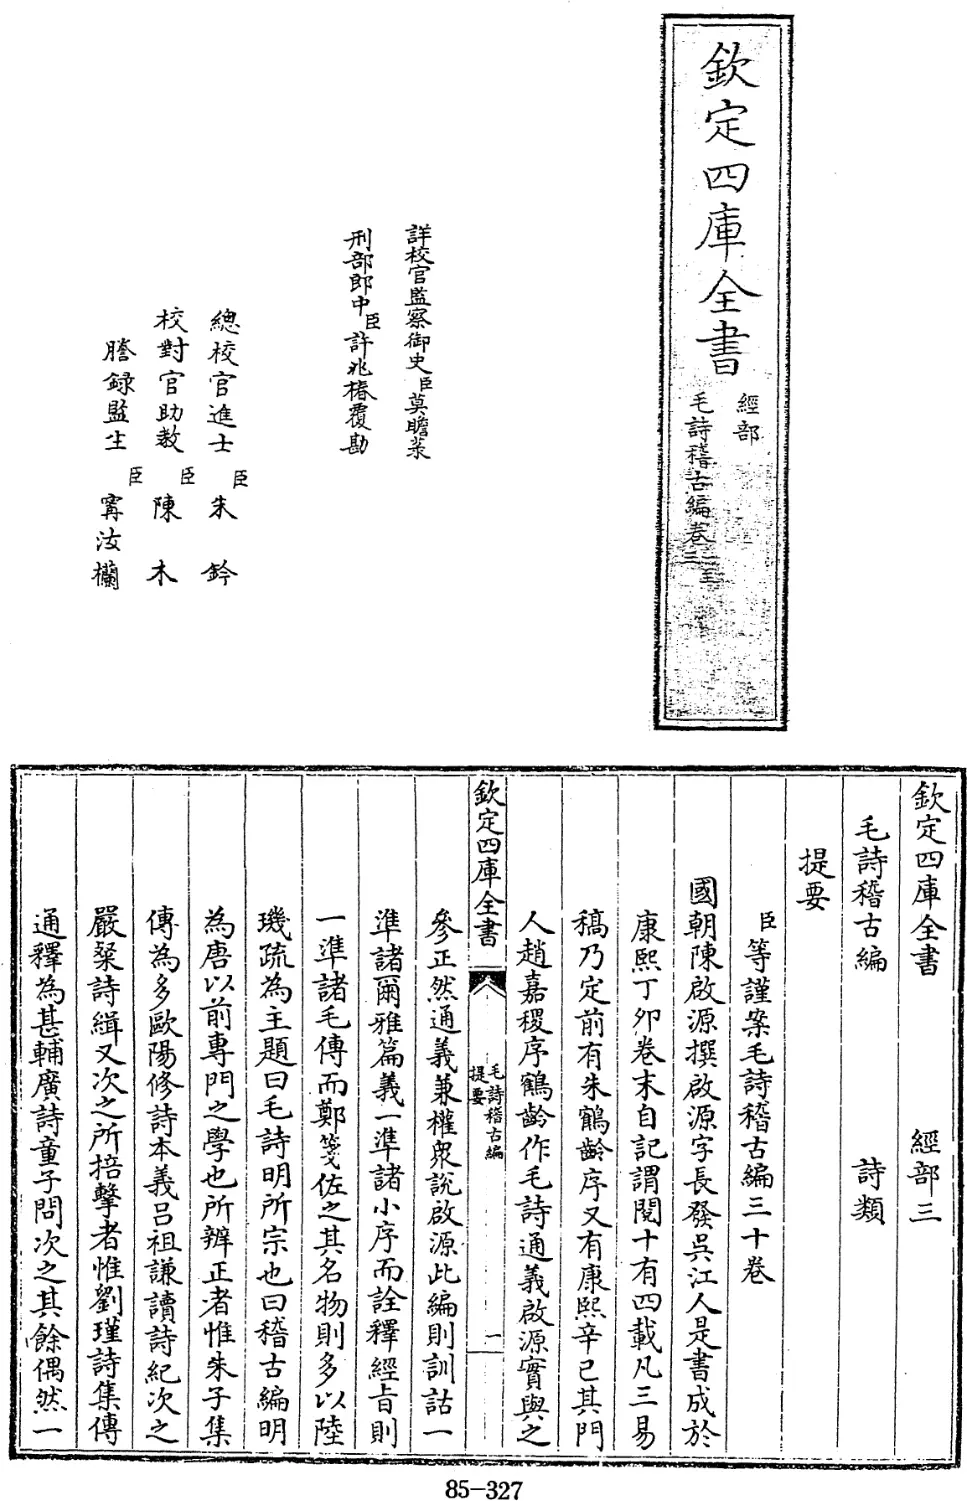 欽定四庫全書
經部
毛詩稽古編卷一至三
詳校官監察御史臣莫瞻菉
刑部郎中臣許兆椿覆勘
總校官進士臣朱鈐
校對官助教臣陳木
謄錄監生臣甯汝欄
欽定四庫全書 經部三
毛詩稽古編 詩類
提要
臣等謹案毛詩稽古編三十卷
國朝陳啟源撰啟源字長發吳江人是書成於
康熙丁卯卷末自記謂閱十有四載凡三易
稿乃定前有朱鶴齡序又有康熙辛巳其門
人趙嘉稷序鶴齡作毛詩通義啟源實與之
欽定四庫全書 毛詩稽古編 提要 一
參正然通義兼權衆說啟源此編則訓詁一
準諸爾雅篇義一準諸小序而詮釋經旨則
一準諸毛傳而鄭箋佐之其名物則多以陸
璣疏為主題曰毛詩明所宗也曰稽古編明
為唐以前專門之學也所辨正者惟朱子集
傳為多歐陽修詩本義呂祖謙讀詩紀次之
嚴粲詩緝又次之所掊擊者惟劉瑾詩集傳
通釋為甚輔廣詩童子問次之其餘偶然一
85-327